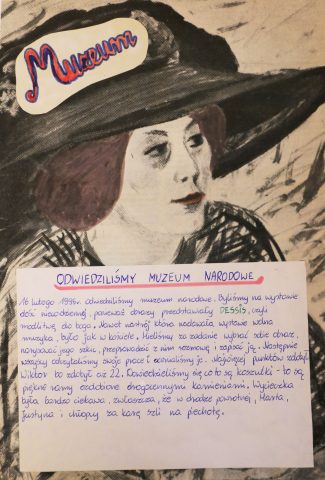 Muzeum
ODWIEDZILIŚMY MUZEUM NARODOWE
16 lutego 1995. odwiedziliśmy muzeum narodowe. Byliśmy na wystawie
dość niecodziennej, ponieważ obrazy przedstawiały DESSIS, czyli
modlitwę do boga. Nawet nastrój który nadawała wystawie wolna
muzyka, był jak w kościele. Mieliśmy za zadanie wybrać sobie obraz,
narysować jego szkic, przeprowadzić z nim rozmowę i zapisać ją. Następnie
wszyscy odczytaliśmy swoje prace i ocenialiśmy je. Najwięcej punktów zdobył
Wiktor bo zdobył aż 22. Dowiedzieliśmy się co to są koszulki - to są
piękne ramy ozdobione drogocennymi kamieniami. Wycieczka
była bardzo ciekawa, zwłaszcza, że w drodze powrotnej, Marta,
Justyna i chłopcy za karę szli na piechotę.